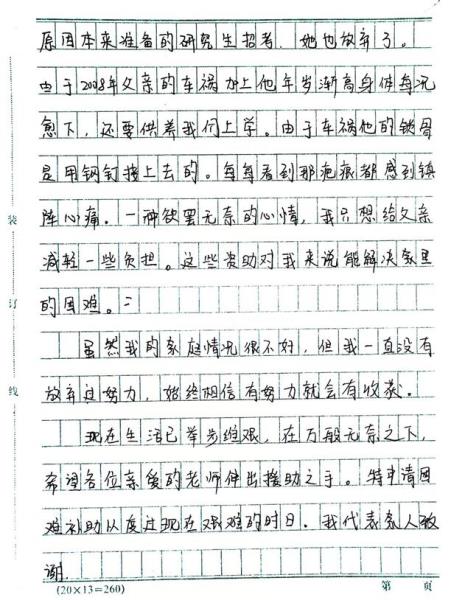 原因本来准备的研究生招考，她也放弃了。
由于2008年父亲的车祸加上他年岁渐高身体每况
愈下，还要供养我们上学。由于车祸他的锁骨
是用钢钉接上去的。每每看到那疤痕都感到镇
阵心痛。一种欲罢无奈的心情，我只想给父亲
减轻一些负担。这些资助对我来说能解决家里
的困难。二
虽然我的家庭情况很不好，但我一直没有
放弃过努力，始终相信有努力就会有收获。
现在生活已举步维艰，在万般无奈之下，
希望各位亲爱的老师伸出援助之手。特申请困
难补助以度过现在艰难的时日。我代表家人敬
谢
装
订
线
(20×13=260)
第 页